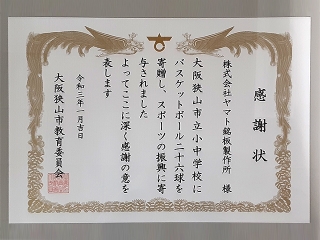 感謝状
株式会社ヤマト銘板製作所 様
大阪狭山市立小中学校に
バスケットボール二十六球を
寄贈し、スポーツの振興に寄
与されました
よってここに深く感謝の意を
表します
令和三年一月吉日
大阪狭山市教育委員会